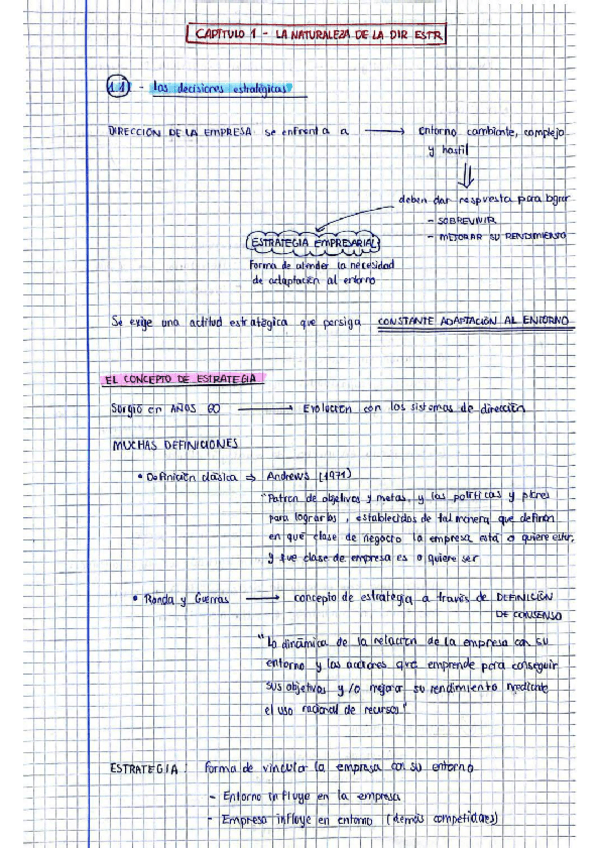 CAPÍTULO 1 - LA NATURALEZA DE LA DIR ESTR.
1.1 - las decisiones estratégicas
DIRECCIÓN DE LA EMPRESA se enfrenta a → Entorno cambiante, complejo
y hostil
deben dar respuesta para lograr
- SOBREVIVIR
- MEJORAR SU RENDIMIENTO
ESTRATEGIA EMPRESARIAL
Forma de atender la necesidad
de adaptación al entorno
Se exige una actitud estratégica que persiga CONSTANTE ADAPTACIÓN AL ENTORNO
EL CONCEPTO DE ESTRATEGIA
Surgió en AÑOS 60 → Evolución con los sistemas de dirección
MUCHAS DEFINICIONES
• Definición clásica ⇒ Andrews (1971)
"Patrón de objetivos y metas, y las políticas y planes
para lograrlos, establecidos de tal manera que definan
en qué clase de negocio la empresa está o quiere estar,
y que clase de empresa es o quiere ser
• Ronda y Guerras → concepto de estrategia a través de DEFINICIÓN
DE CONSENSO
"La dinámica de la relación de la empresa con su
entorno y las acciones que emprende para conseguir
sus objetivos y/o mejorar su rendimiento mediante
el uso racional de recursos"
ESTRATEGIA: forma de vincular la empresa con su entorno
- Entorno influye en la empresa
- Empresa influye en entorno (demás competidores)